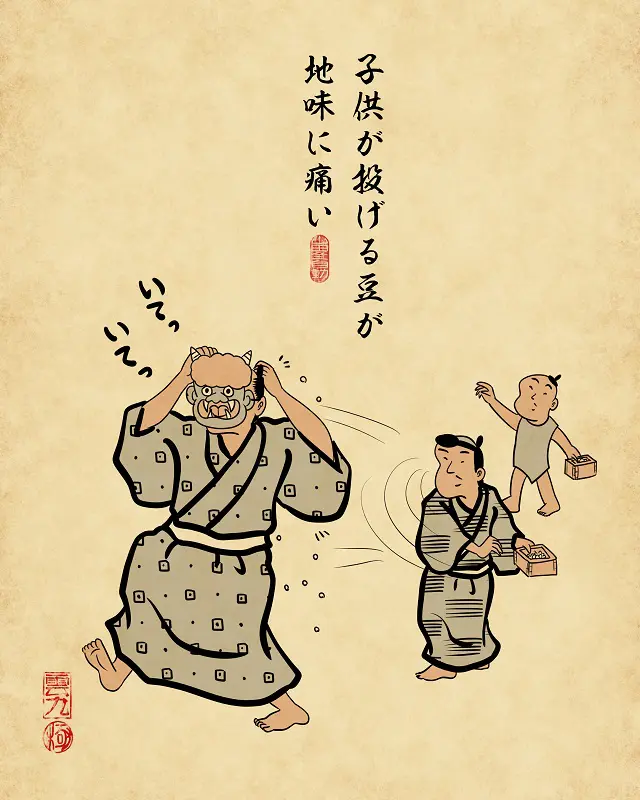 子供が投げる豆が
地味に痛い
いてっ
いてっ